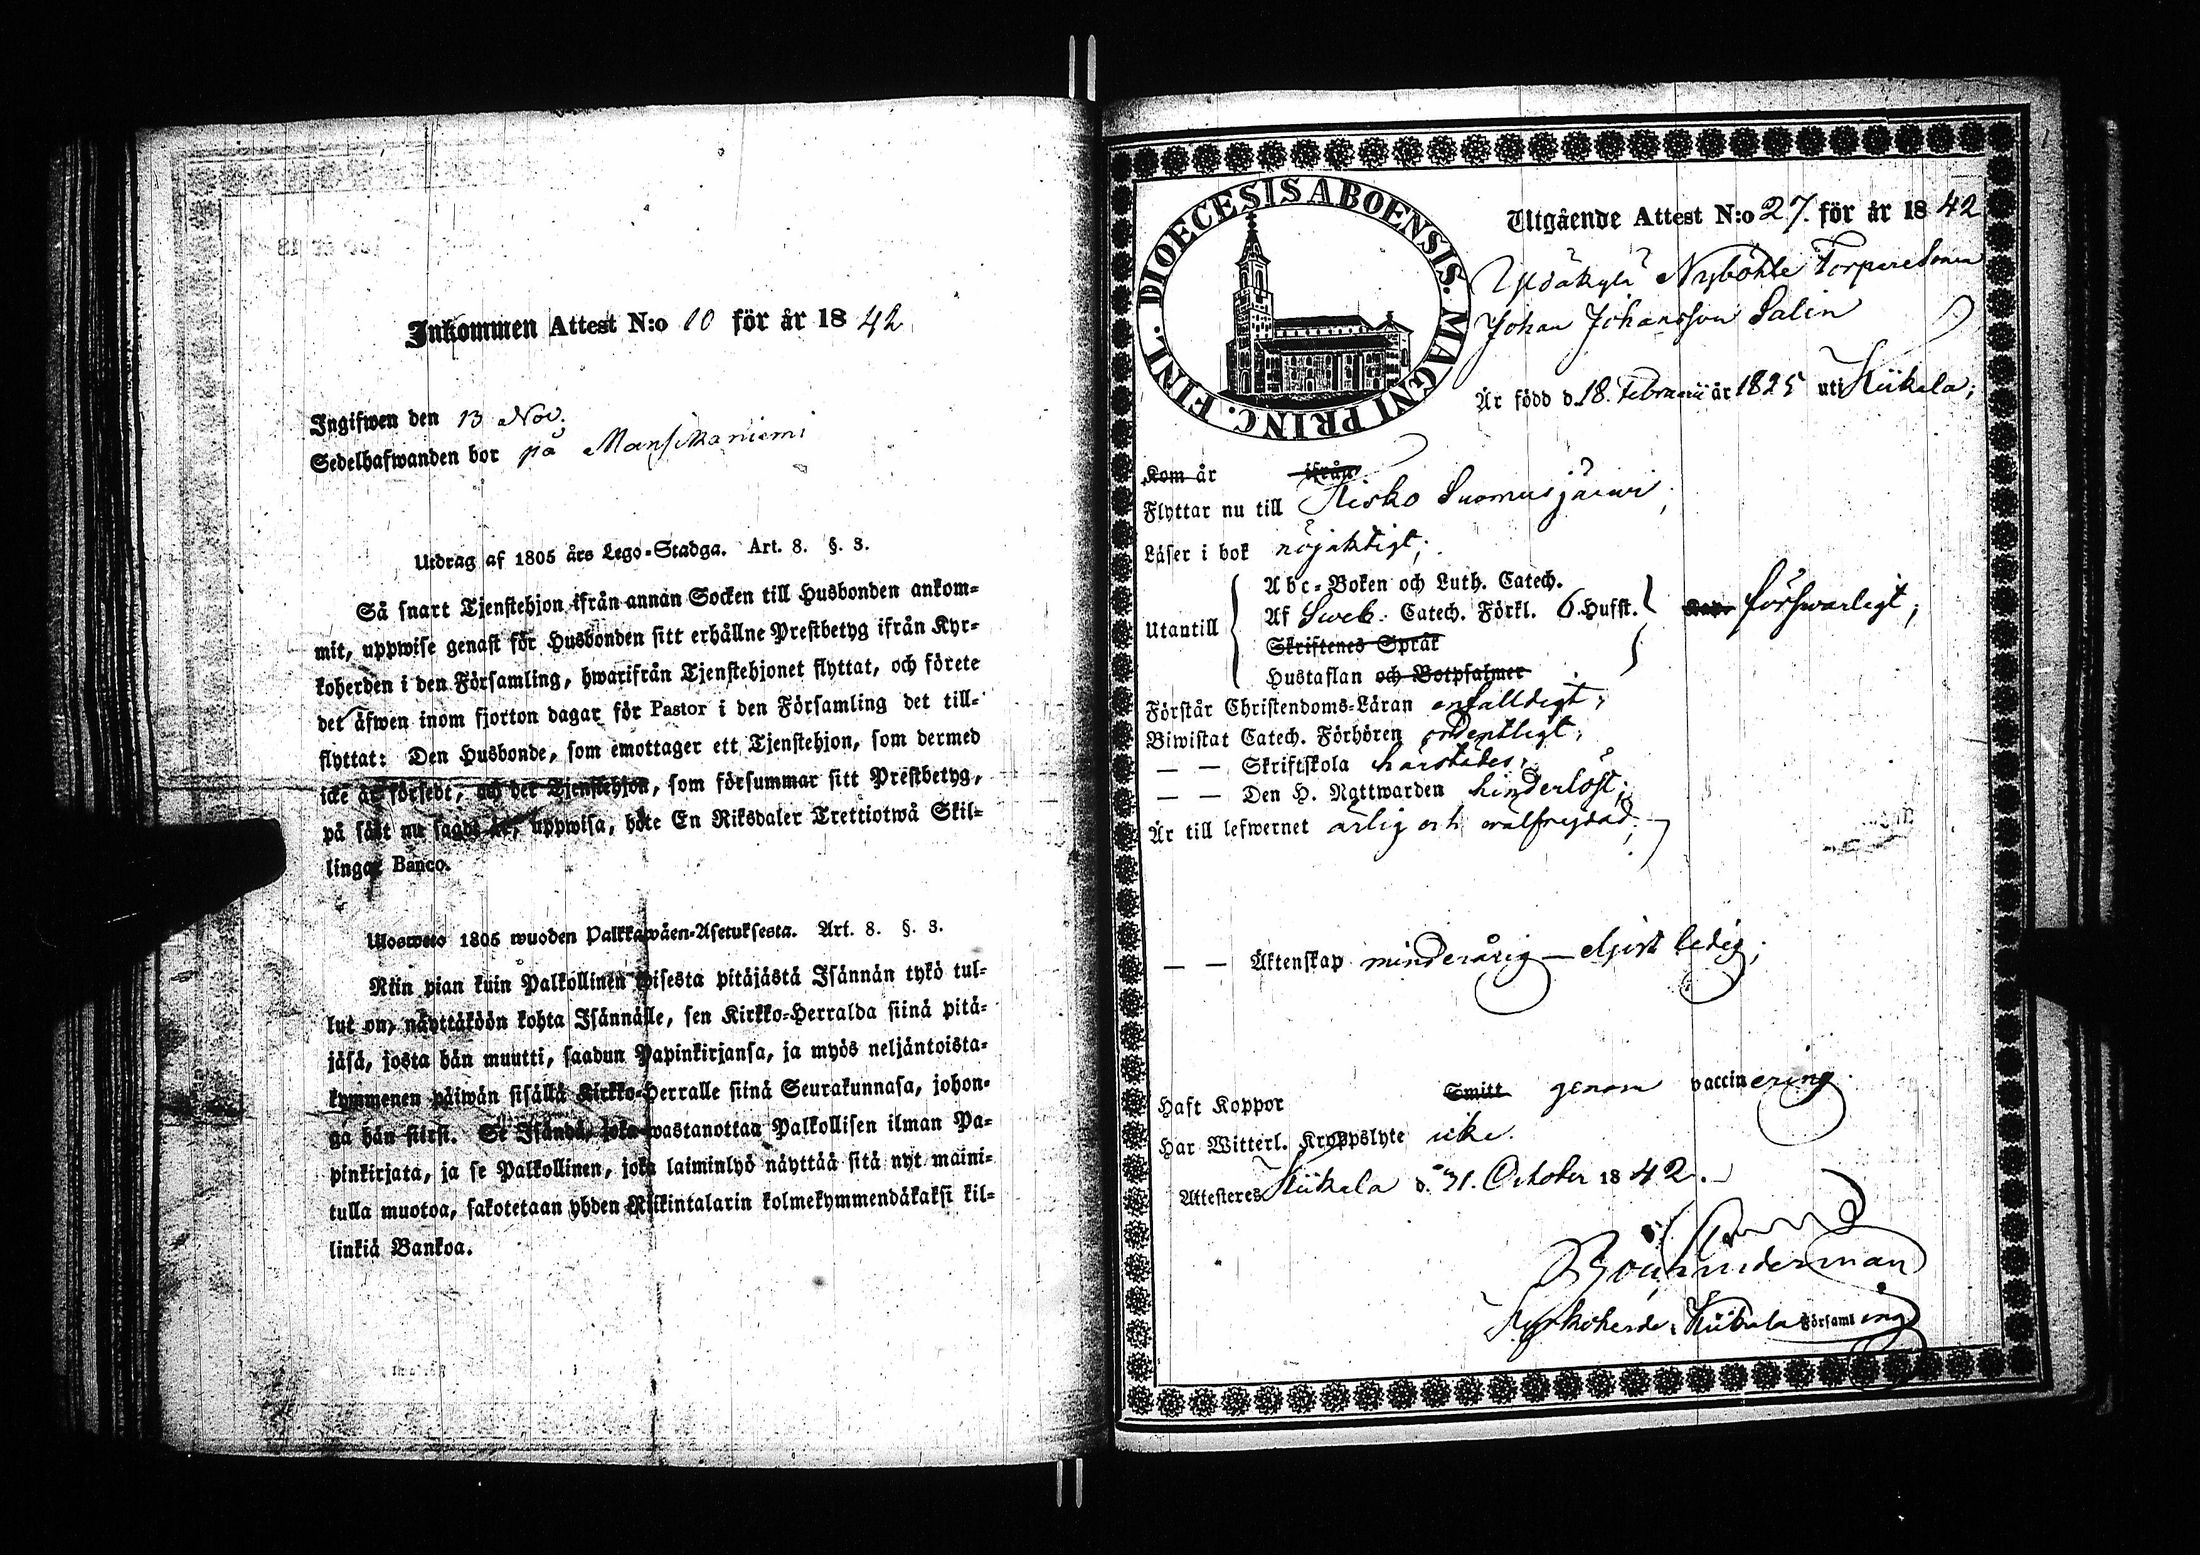 Inkommen Attest N:o 10 för år 1842
Ingifwen den 13 Nov.
Sedelhafwanden bor på Mansikaniemi
Utdrag af 1805 års Lego-Stadga. Art. 8. §. 3.
Så snart Tjenstehjon ifrån annan Socken till Husbonden ankom-
mit, uppwise genast för Husbonden sitt erhållne Prestbetyg ifrån Kyr-
koherden i den Församling, hwarifrån Tjenstehjonet flyttat, och förete
det äfwen inom fjorton dagar för Pastor i den Församling det till-
flyttat: Den Husbonde, som emottager ett Tjenstehjon, som dermed
icke är försedt, och det Tjenstehjon, som försummar sitt Prestbetyg,
på sätt nu sagdt är, uppwisa, böte En Riksdaler Trettiotwå Skil-
lingar Banco.
Ulosweto 1805 wuoden Palkkawäen-Asetuksesta. Art. 8. §. 3.
Niin pian kuin Palkollinen toisesta pitäjästä Isännän tykö tul-
lut on, näyttäköön kohta Isännälle, sen Kirkko-Herralda siinä pitä-
jäsä, josta hän muutti, saadun Papinkirjansa, ja myös neljäntoista-
kymmenen päiwän sisällä Kirkko-Herralle siinä Seurakunnasa, johon-
ga hän siirst. Se Isändä, joka wastanottaa Palkollisen ilman Pa-
pinkirjata, ja se Palkollinen, joka laiminlyö näyttää sitä nyt maini-
tulla muotoa, sakotetaan yhden Riikintalarin kolmekymmendäkaksi kil-
linkiä Bankoa.
DIOECESIS ABOENSIS. MAGNI PRINC. FINL.
Utgående Attest N:o 27. för år 1842
Nyböhle Torparesonen
Johan Johansson Salin
Är född d. 18. Februarii år 1825 uti Kiikala;
Kom år ifrån
Flyttar nu till Kisko Suomusjärwi;
Läser i bok nöjaktigt;
Abc-Boken och Luth. Catech.
Utantill Af Sveb. Catech. Förkl. 6. Hufst. förswarligt;
Skriftenes Språk
Hustaflan och Botpsalmer
Förstår Christendoms-Läran enfalldigt;
Biwistat Catech. Förhören ordentligt;
— — Skriftskola härstädes;
— — Den H. Nattwarden hinderlöst;
Är till lefwernet ärlig och wälfrejdad;
— — Äktenskap minderårig — eljest ledig;
Haft Koppor Smitt genom vaccinering.
Har Witterl. Kroppslyte icke.
Attesteres Kiikala d. 31. October 1842.
Kyrkoherde i Kiikala Församling